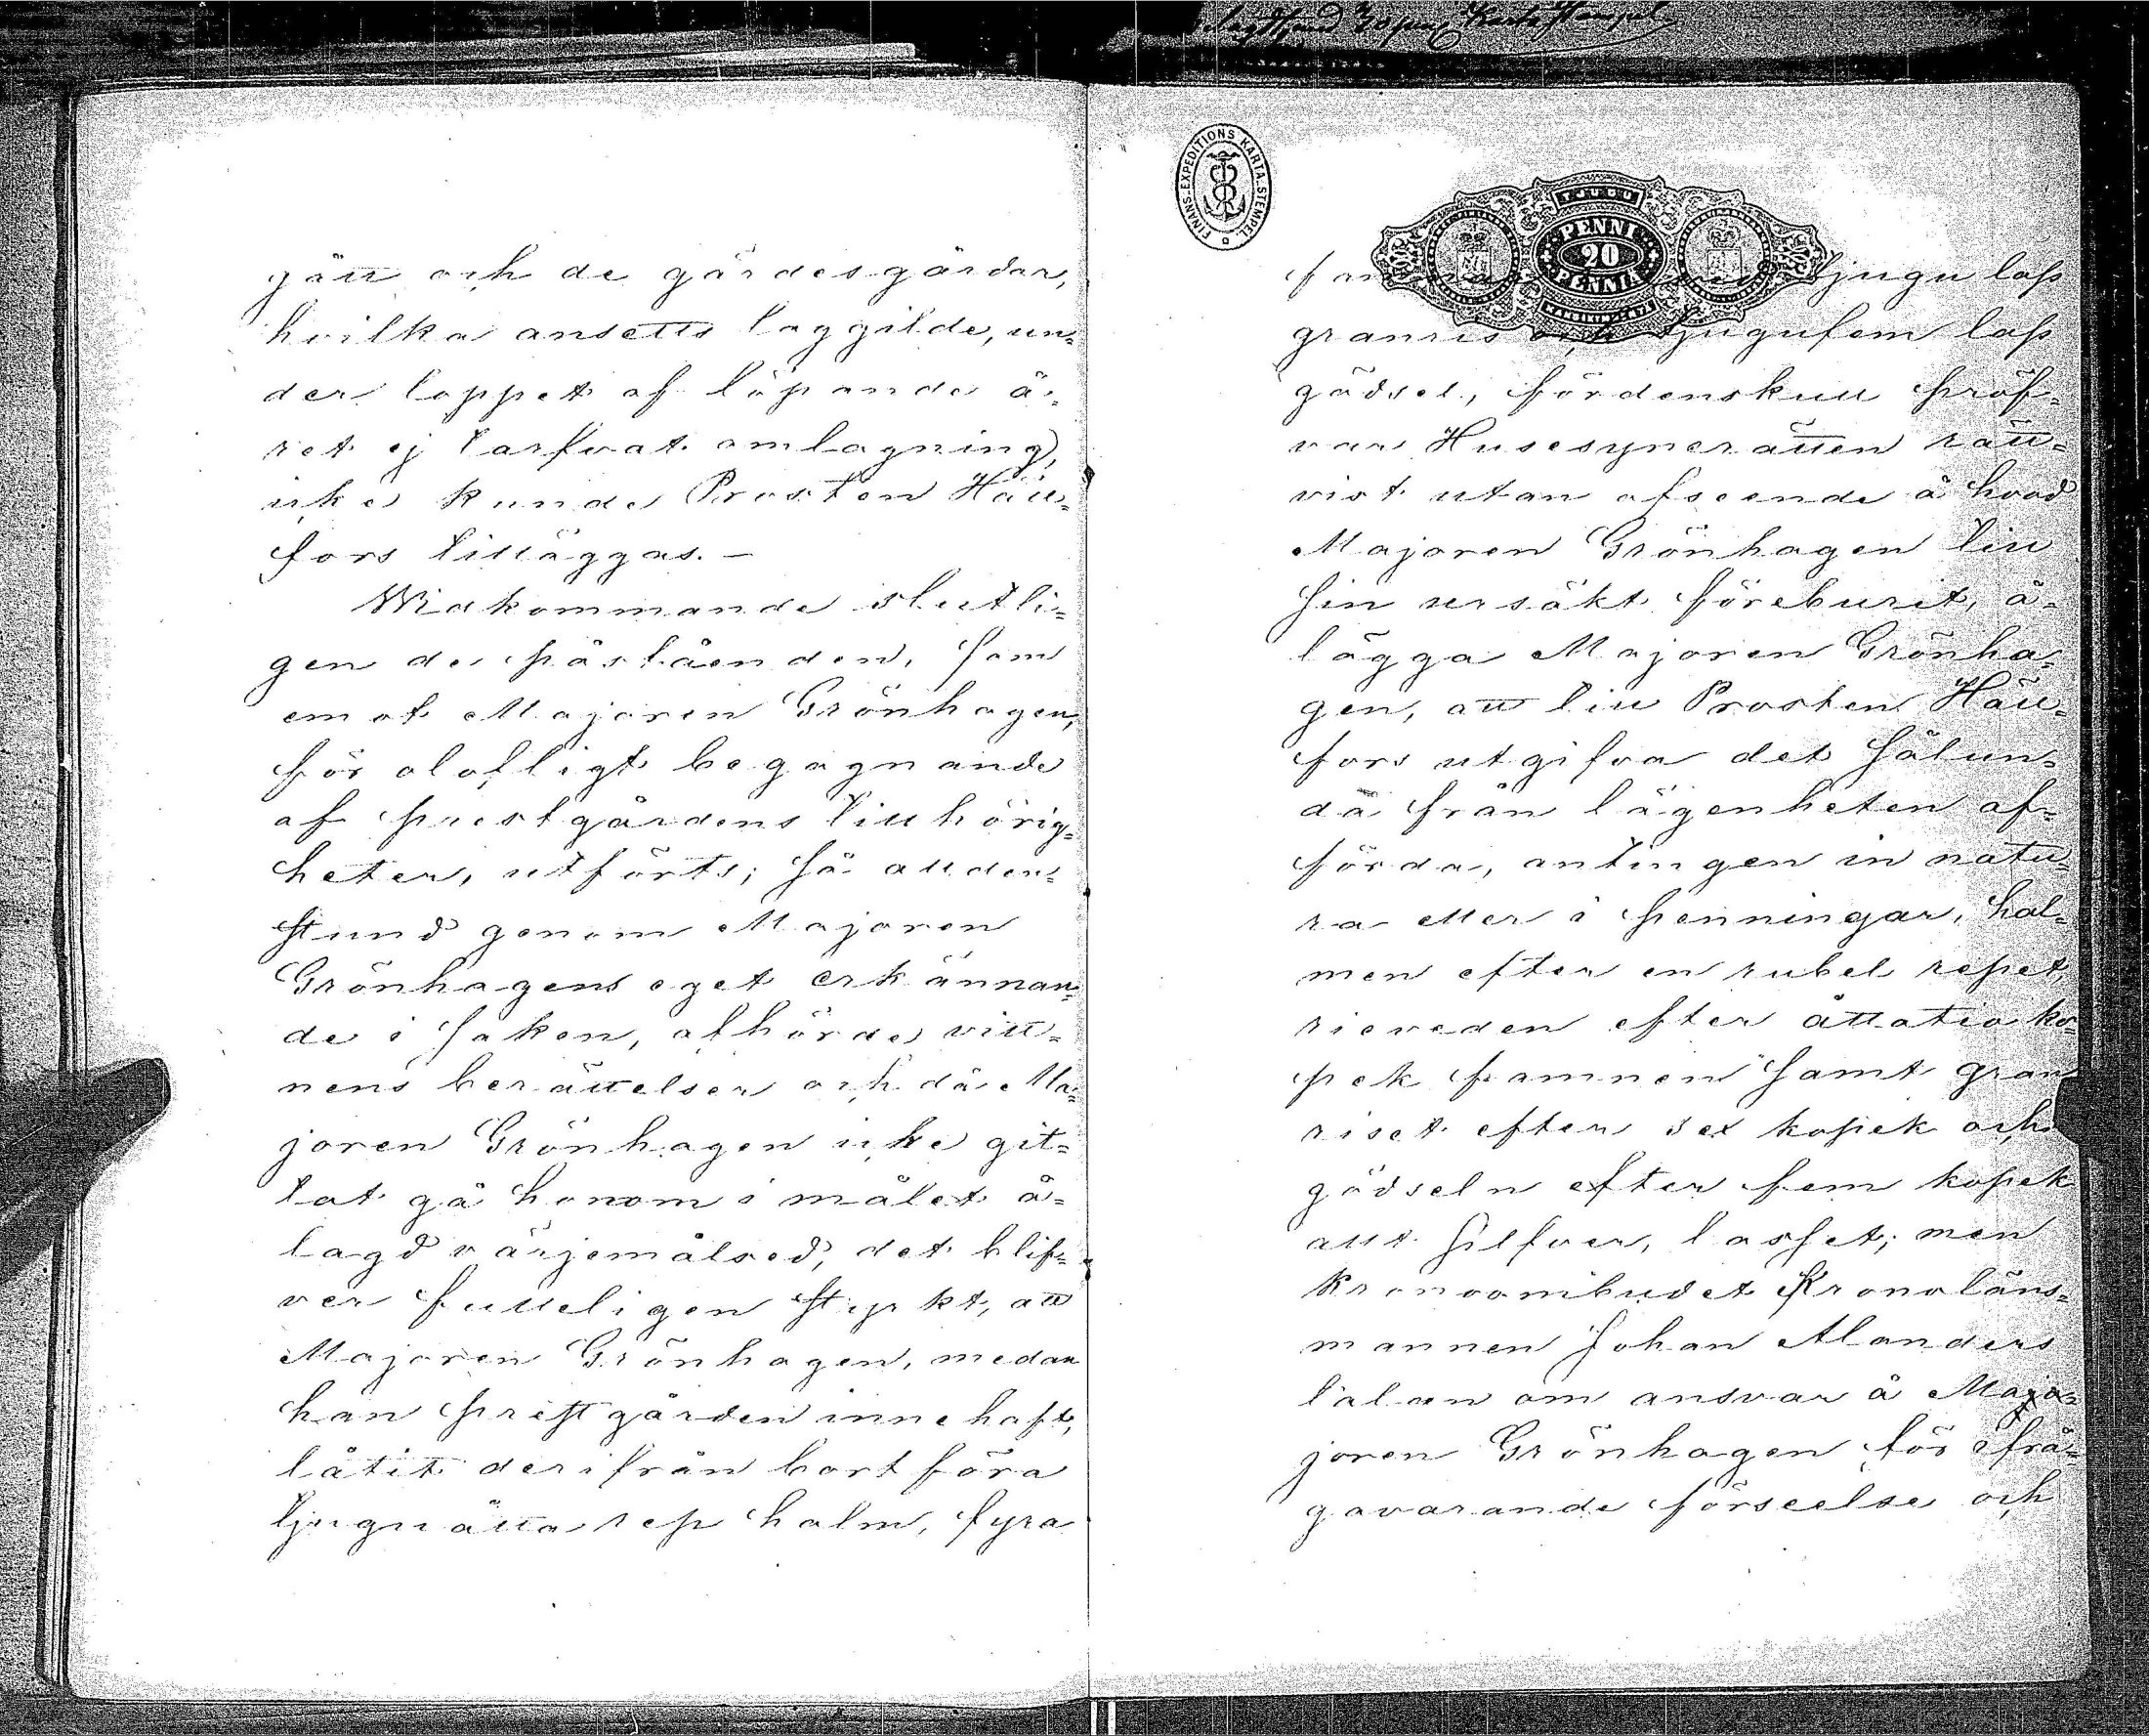 gält och de gärdesgårdar,
hvilka ansetts laggilde, un=
der loppet af löpande å=
ret ej tarfvat omlagning,
icke kunde Prosten Häll=
fors tilläggas. —
Widkommande slutli=
gen de påståenden, som
emot Majoren Grönhagen,
för olofligt begagnande
af prestgårdens tillhörig=
heter, utförts; så allden=
stund genom Majoren
Grönhagens eget erkännan=
de i saken, afhörde vitt=
nens berättelser och då Ma=
joren Grönhagen icke git=
tat gå honom i målet å=
lagd värjemålsed, det blif=
ver fulleligen styrkt, att
Majoren Grönhagen, medan
han prestgården innehaft,
låtit derifrån bortföra
tjuguåtta rep halm, fyra
FINANS-EXPEDITIONS KARTA-STEMPEL
TJUGU
PENNI
20
PENNIÄ
tjugu lass
granris och tjugufem lass
gödsel, fördenskull pröf=
var Husesynerätten rätt=
vist utan afseende å hvad
Majoren Grönhagen till
sin ursäkt föreburit, å=
lägga Majoren Grönha=
gen, att till Prosten Häll=
fors utgifva det sålun=
da från lägenheten af=
förda, antingen in natu=
ra eller i penningar, hal=
men efter en rubel repet,
rieveden efter åttatio ko=
pek famnen samt gran
riset efter sex kopek och
gödseln efter fem kopek
allt silfver, lasset; men
Kronoombudet Kronoläns=
mannen Johan Alanders
talan om ansvar å Majo=
joren Grönhagen för ifrå=
gavarande förseelse och